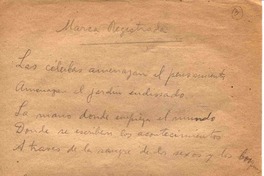 Marca Registrada
Las célebres amenazan el pensamiento
Amenazan el jardín endiosado
La mano donde empieza el mundo
Donde se escriben los acontecimientos
A través de la sangre de los sexos y las